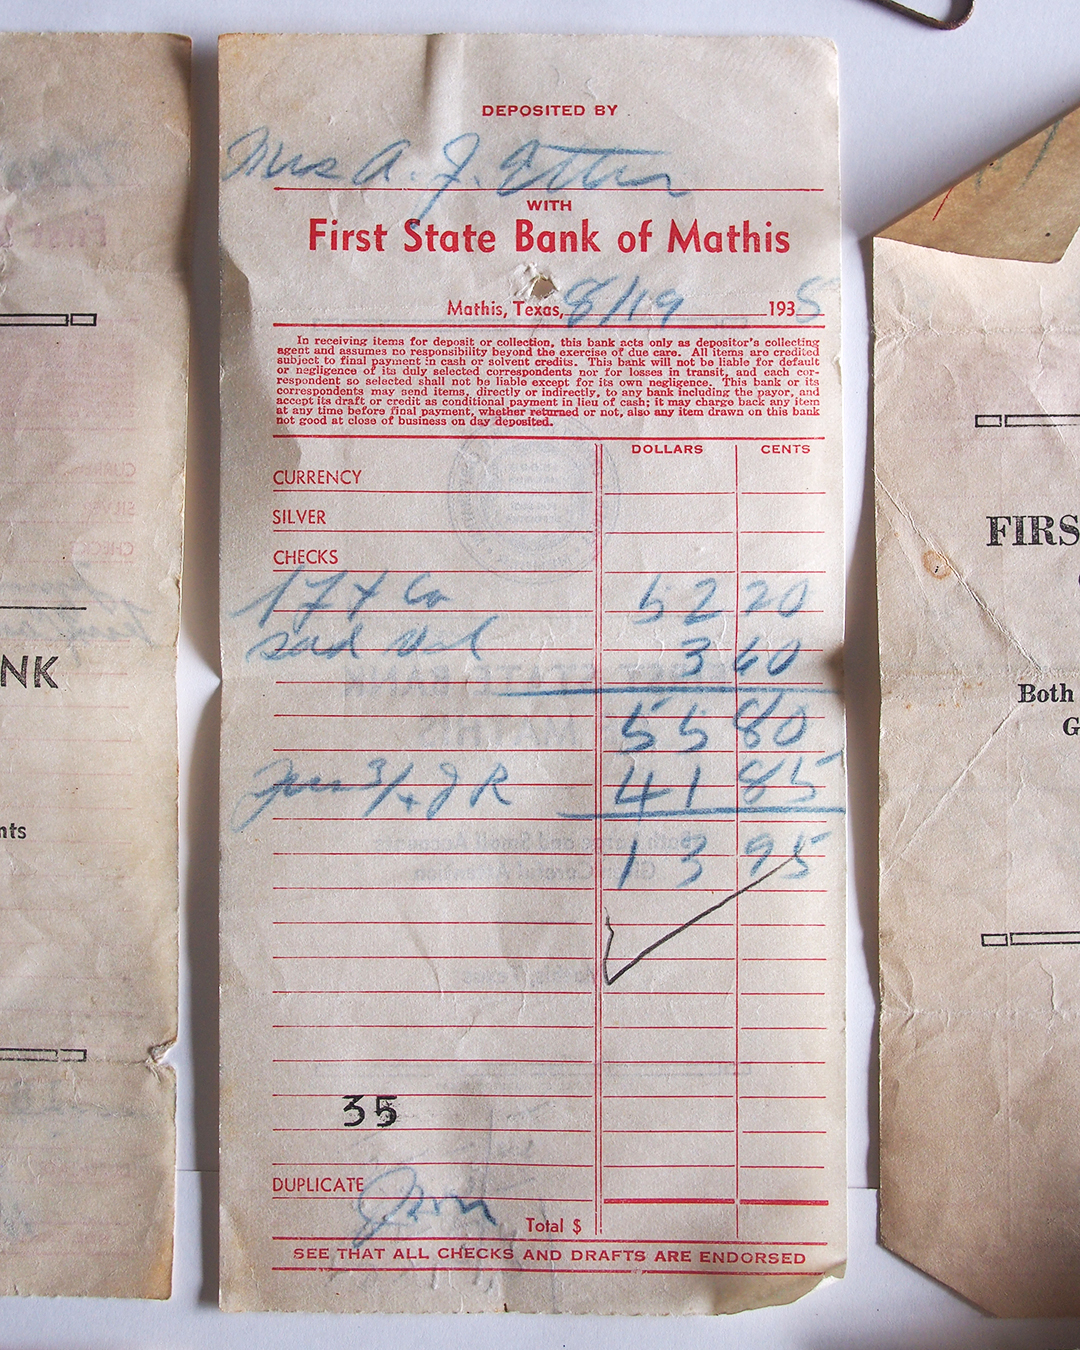 DEPOSITED BY
Mrs A. J.
WITH
First State Bank of Mathis
Mathis, Texas, 8/19 1935
In receiving items for deposit or collection, this bank acts only as depositor's collecting
agent and assumes no responsibility beyond the exercise of due care. All items are credited
subject to final payment in cash or solvent credits. This bank will not be liable for default
or negligence of its duly selected correspondents nor for losses in transit, and each cor-
respondent so selected shall not be liable except for its own negligence. This bank or its
correspondents may send items, directly or indirectly, to any bank including the payor, and
accept its draft or credit as conditional payment in lieu of cash; it may charge back any item
at any time before final payment, whether returned or not, also any item drawn on this bank
not good at close of business on day deposited.
DOLLARS CENTS
CURRENCY
SILVER
CHECKS
52 20
3 60
55 80
J R 41 85
13 95
35
DUPLICATE
Total $
SEE THAT ALL CHECKS AND DRAFTS ARE ENDORSED
NK
nts
FIRS
Both
G